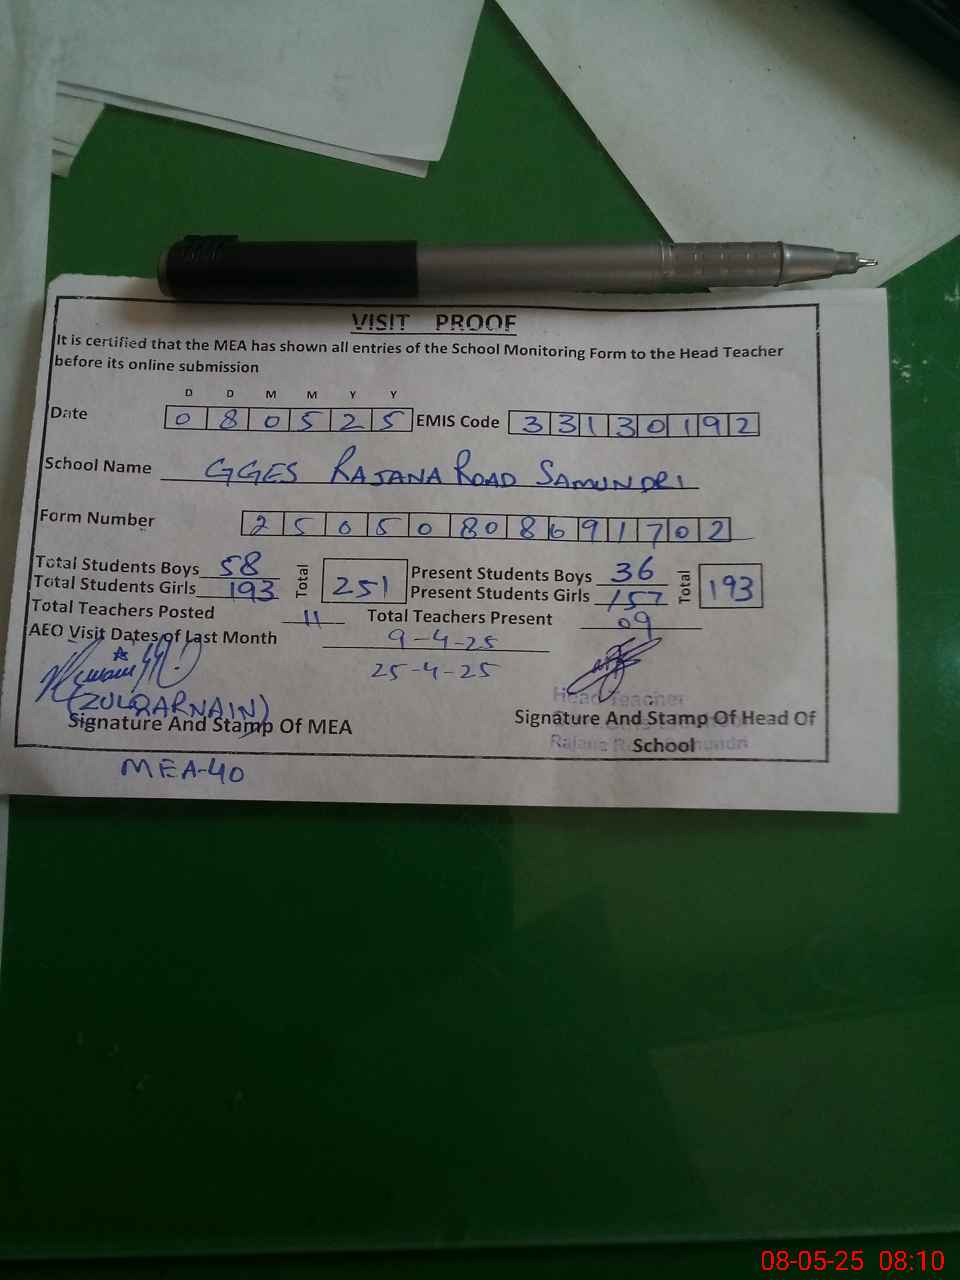 VISIT PROOF
It is certified that the MEA has shown all entries of the School Monitoring Form to the Head Teacher
before its online submission
D D M M Y Y
Date 0 8 0 5 2 5 EMIS Code 3 3 1 3 0 1 9 2
School Name GGES RAJANA ROAD SAMUNDRI
Form Number 2 5 0 5 0 8 0 8 6 9 1 7 0 2
Total Students Boys 58 Total 251 Present Students Boys 36 Total 193
Total Students Girls 193 Present Students Girls 157
Total Teachers Posted 11 Total Teachers Present 09
AEO Visit Dates of Last Month 9-4-25
25-4-25
(ZULQARNAIN)
Head Teacher
Signature And Stamp Of MEA Signature And Stamp Of Head Of
School
MEA-40
08-05-25 08:10